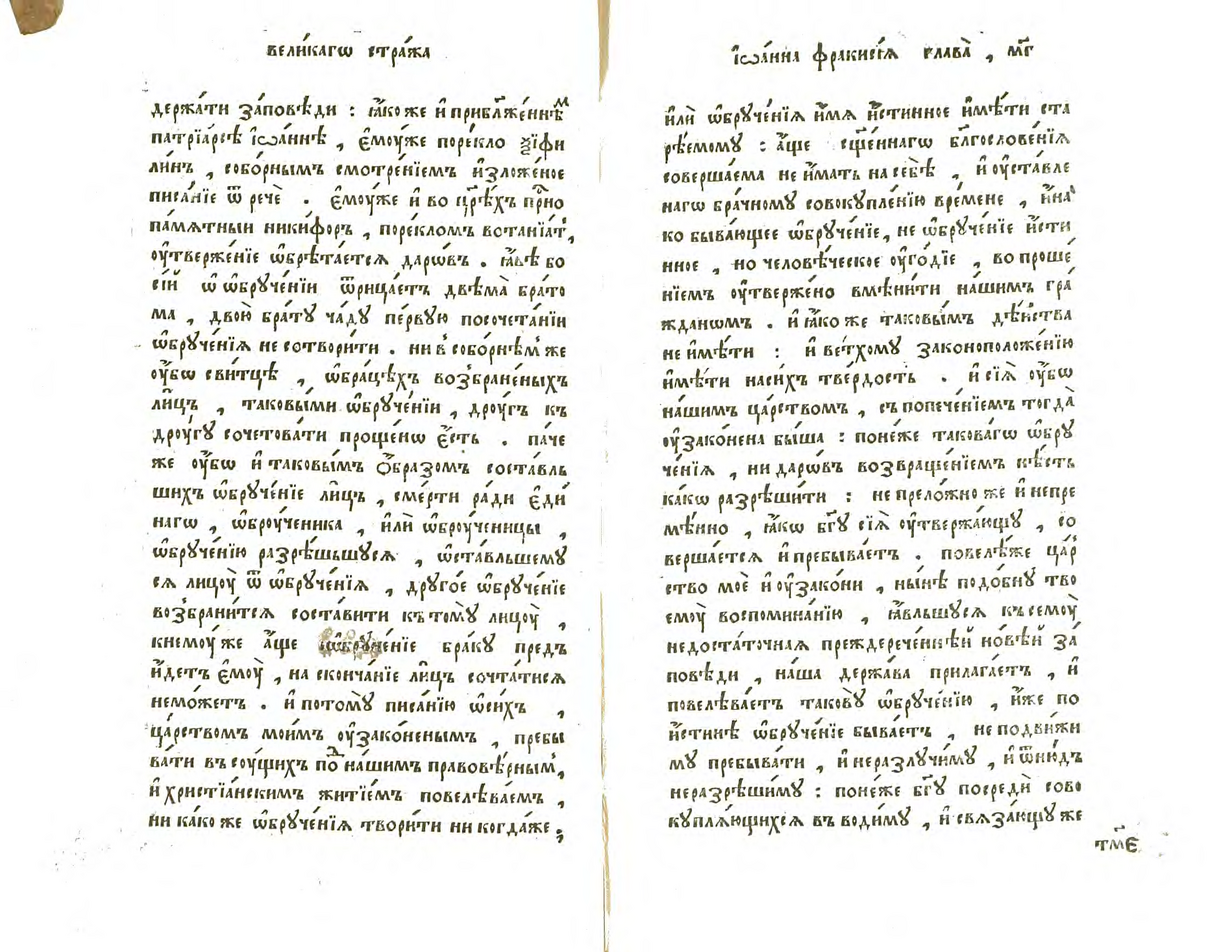 вели́кагѡ стра́жа
держа́ти за́повѣди : ꙗ҆́коже и҆ прибл҃же́ннѣⷨ
патрїа́рсѣ і҆ѡа́ннѣ , є҆моу́же поре́кло ѯїфи
ли́нъ , собо́рнымъ смотре́нїемъ и҆зложе́ное
писа́нїе ѿ речѐ . є҆моу́же и҆ во цр҃ѣ́хъ пр҇но
па́мятныи ники́форъ , поре́кломъ вотанїа́т ,
оу҆твержє́нїе ѡ҆брѣта́ется даро́въ . ꙗ҆́вѣ бо
сі́й ѡ҆ ѡ҆бруче́нїи ѿрица́етъ двѣма̀ бра́то
ма , двою̀ бра́ту ча́ду пе́рвую посочета́нїи
ѡ҆бруче́нїя не сотвори́ти . ни в собо́рнѣмъ же
оу҆́бѡ сви́тцѣ , ѡ҆бра́цѣхъ возбране́ныхъ
ли́цъ , таковы́ми ѡ҆бруче́нїи , дроу́гъ къ
дроу́гу сочетова́ти проще́нѡ є҆́сть . па́че
же оу҆́бѡ и҆ таковы́мъ ѻ҆́бразомъ соста́вль
шихъ ѡ҆бруче́нїе ли́цъ , сме́рти ра́ди є҆ди́
нагѡ , ѡ҆броу́ченика , и҆лѝ ѡ҆броу́ченицы ,
ѡ҆бруче́нїю разрѣ́шьшуся , ѡ҆ста́вльшему
ся лицоу̀ ѿ ѡ҆бруче́нїя , друго́е ѡ҆бруче́нїе
возбрани́тся соста́вити къ тому̀ лицоу̀ ,
кнемоу́ же а҆́ще ѡ҆бруче́нїе бра́ку предъ
и҆́детъ є҆моу̀ , на сконча́нїе ли́цъ сочта́тися
немо́жетъ . и҆ потому̀ писа́нїю ѡ҆си́хъ ,
ца́рствомъ мои́мъ оу҆зако́ненымъ , пребы
ва́ти въ соу́щихъ поⷣ на́шимъ правовѣ́рным ,
и҆ христїа́нскимъ житїе́мъ повелѣва́емъ ,
ни ка́ко же ѡ҆бруче́нїя твори́ти ни когда́же ,
і҆ѡа́нна фракисі́я глава̀ , мг҃
и҆лѝ ѡ҆бруче́нїя и҆́мя и҆́стинное и҆мѣ́ти ста
рѣ́емому : а҆́ще сщ҃е́ннагѡ бл҃гослове́нїя
соверша́ема не и҆́мать на себѣ̀ , и҆ оу҆ста́вле
нагѡ бра́чному совокупле́нїю вре́мене , и҆́на
ко быва́ющее ѡ҆бруче́нїе , не ѡ҆бруче́нїе и҆́сти
нное , но человѣ́ческое оу҆го́дїе , во проше́
нїемъ оу҆тверже́но вмѣни́ти на́шимъ гра́
жданѡмъ . и҆ ꙗ҆́ко же таковы́мъ дѣ́йства
не и҆мѣ́ти : и҆ ве́тхому законоположе́нїю
и҆мѣ́ти наси́хъ тве́рдость . и҆ сїя̀ оу҆́бѡ
на́шимъ ца́рствомъ , съ попече́нїемъ тогда̀
оу҆зако́нена бы́ша : поне́же такова́гѡ ѡ҆бру
че́нїя , ни даро́въ возвраще́нїемъ нѣ́сть
ка́кѡ разрѣши́ти : не прело́жно же и҆ непре
мѣ́нно , ꙗ҆́кѡ бг҃у сїя̀ оу҆твержа́ющу , со
верша́ется и҆ пребыва́етъ . повелѣ́же ца́р
ство моѐ и҆ оу҆зако́ни , ны́нѣ подо́бну тво
емоу̀ воспомина́нїю , ꙗ҆́вльшуся къ семоу̀
недоста́точная преждерече́ннѣй но́вѣй за́
повѣди , на́ша держа́ва прилага́етъ , и҆
повелѣва́етъ тако́ву ѡ҆бруче́нїю , и҆́же по
и҆́стинѣ ѡ҆бруче́нїе быва́етъ , не подви́жи
му пребыва́ти , и҆ неразлучи́му , и҆ ѿню́дъ
неразрѣши́му : поне́же бг҃у посредѝ сово
купля́ющихся въ води́му , и҆ связа́ющу же
тм҃е